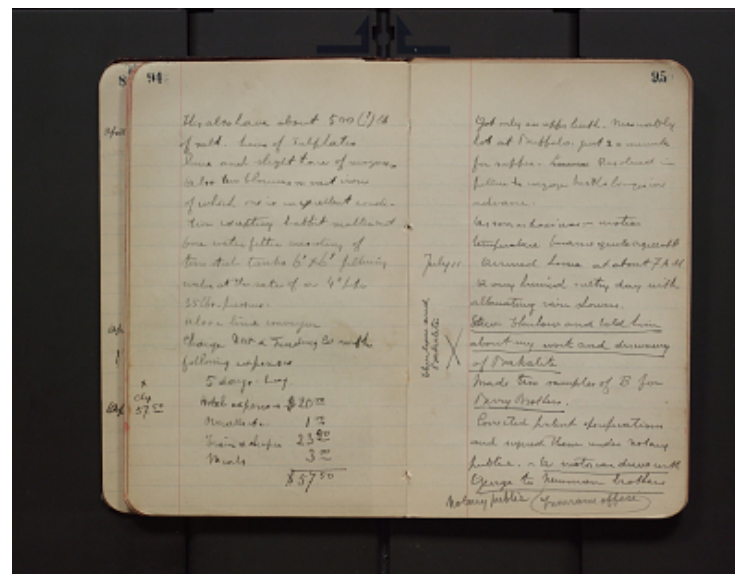 8
94
They also have about 500 (?) lb
of salt. Lens of Sulphates
Rare and slight trace of
also two blowers
of which one is in excellent condi-
tion excepting babbit
One water filter consisting of
two steel tanks 6' x 6' filtering
water at the rate of a 4"
55 lbs pressure.
Also a lime conveyor
Charge & Funding Co with
following expenses
5 days
Hotel expenses $20.00
1.00
Train & 23.50
Meals 3.00
$57.50
57.50
95
Got only an upper berth. Miserably
hot at Buffalo. Just 20 minutes
for supper. Resolved in
future to engage berths long in
advance.
As soon as train was in motion
temperature became quite agreeable
July 11 Arrived home at about 7 A.M.
A very humid sultry day with
alternating rain showers.
Thurlow and
Bakalite
Saw Thurlow and told him
about my work and drawing
of Bakalite
Made two samples of B for
Berry Brothers.
Corrected patent specifications
and signed them under notary
public. - In motorcar drove with
George to Neumann brothers
Notary public (Insurance office)